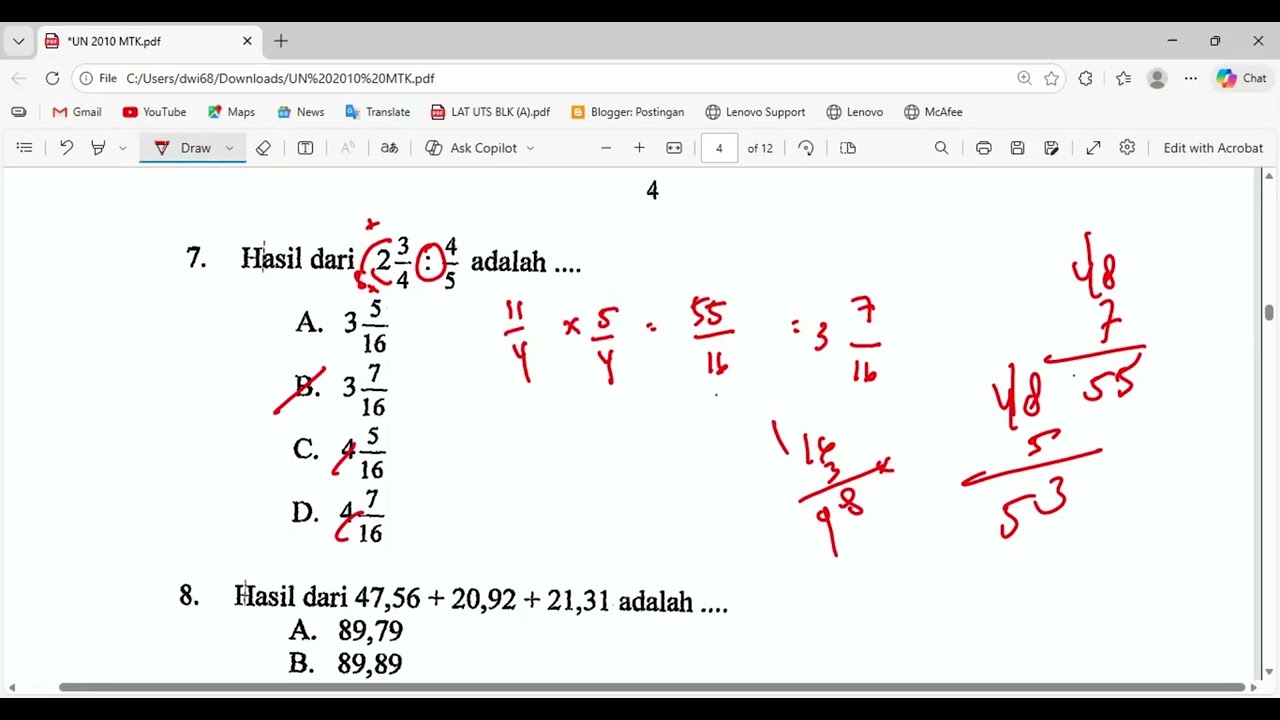 *UN 2010 MTK.pdf
File C:/Users/dwi68/Downloads/UN%202010%20MTK.pdf Chat
Gmail YouTube Maps News Translate LAT UTS BLK (A).pdf Blogger: Postingan Lenovo Support Lenovo McAfee
Draw Ask Copilot 4 of 12 Edit with Acrobat
4
7. Hasil dari 2 3/4 : 4/5 adalah ....
A. 3 5/16
B. 3 7/16
C. 4 5/16
D. 4 7/16
11/4 x 5/4 = 55/16 = 3 7/16
16
3 x
48
48
7
55
48
5
53
8. Hasil dari 47,56 + 20,92 + 21,31 adalah ....
A. 89,79
B. 89,89